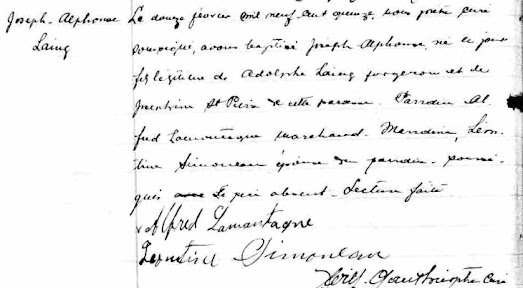 Joseph-Alphonse
Laing
Le douze février mil neuf cent quinze, nous prêtre curé
soussigné, avons baptisé Joseph Alphonse, né ce jour
fils légitime de Adolphe Laing forgeron et de
St Pierre de cette paroisse. Parrain Al-
fred Lamontagne marchand. Marraine, Léon-
tine Simoneau épouse du parrain soussi-
gnés Le père absent. Lecture faite
Alfred Lamontagne
Leontine Simoneau
ptre curé